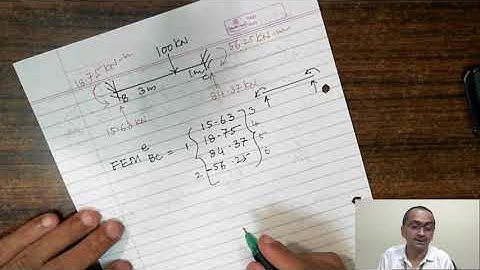 100KN
56.25 KN-m
18.75 KN-m
B 3m 1m C
84.37 KN
15.63 KN
15.63 3
18.75 4
FEM e BC = 1 84.37 5
2 -56.25 6